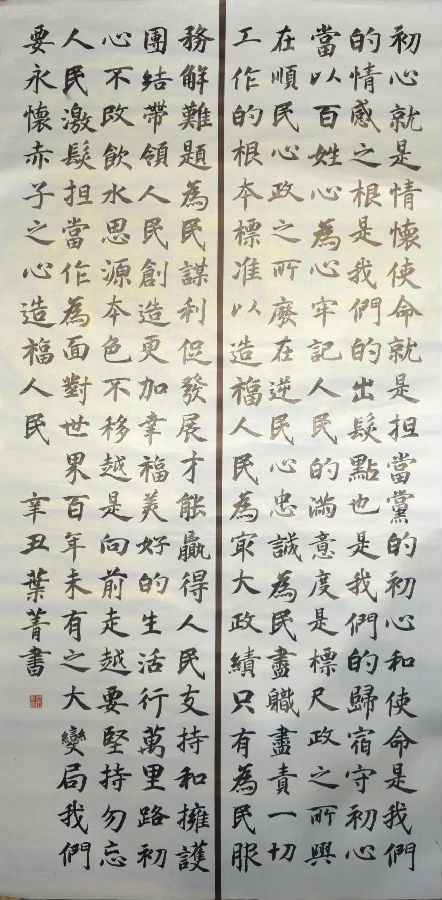 初心就是情懷使命就是担當黨的初心和使命是我們
的情感之根是我們的出髮點也是我們的歸宿守初心
當以百姓心為心牢記人民的滿意度是標尺政之所興
在順民心政之所廢在逆民心忠誠為民盡軄盡責一切
工作的根本標准以造福人民為冣大政績只有為民服
務解難題為民謀利促發展才能贏得人民支持和擁護
團結帶領人民創造更加幸福美好的生活行萬里路初
心不改飲水思源本色不移越是向前走越要堅持勿忘
人民激髮担當作為面對世界百年未有之大變局我們
要永懷赤子之心造福人民 辛丑葉菁書